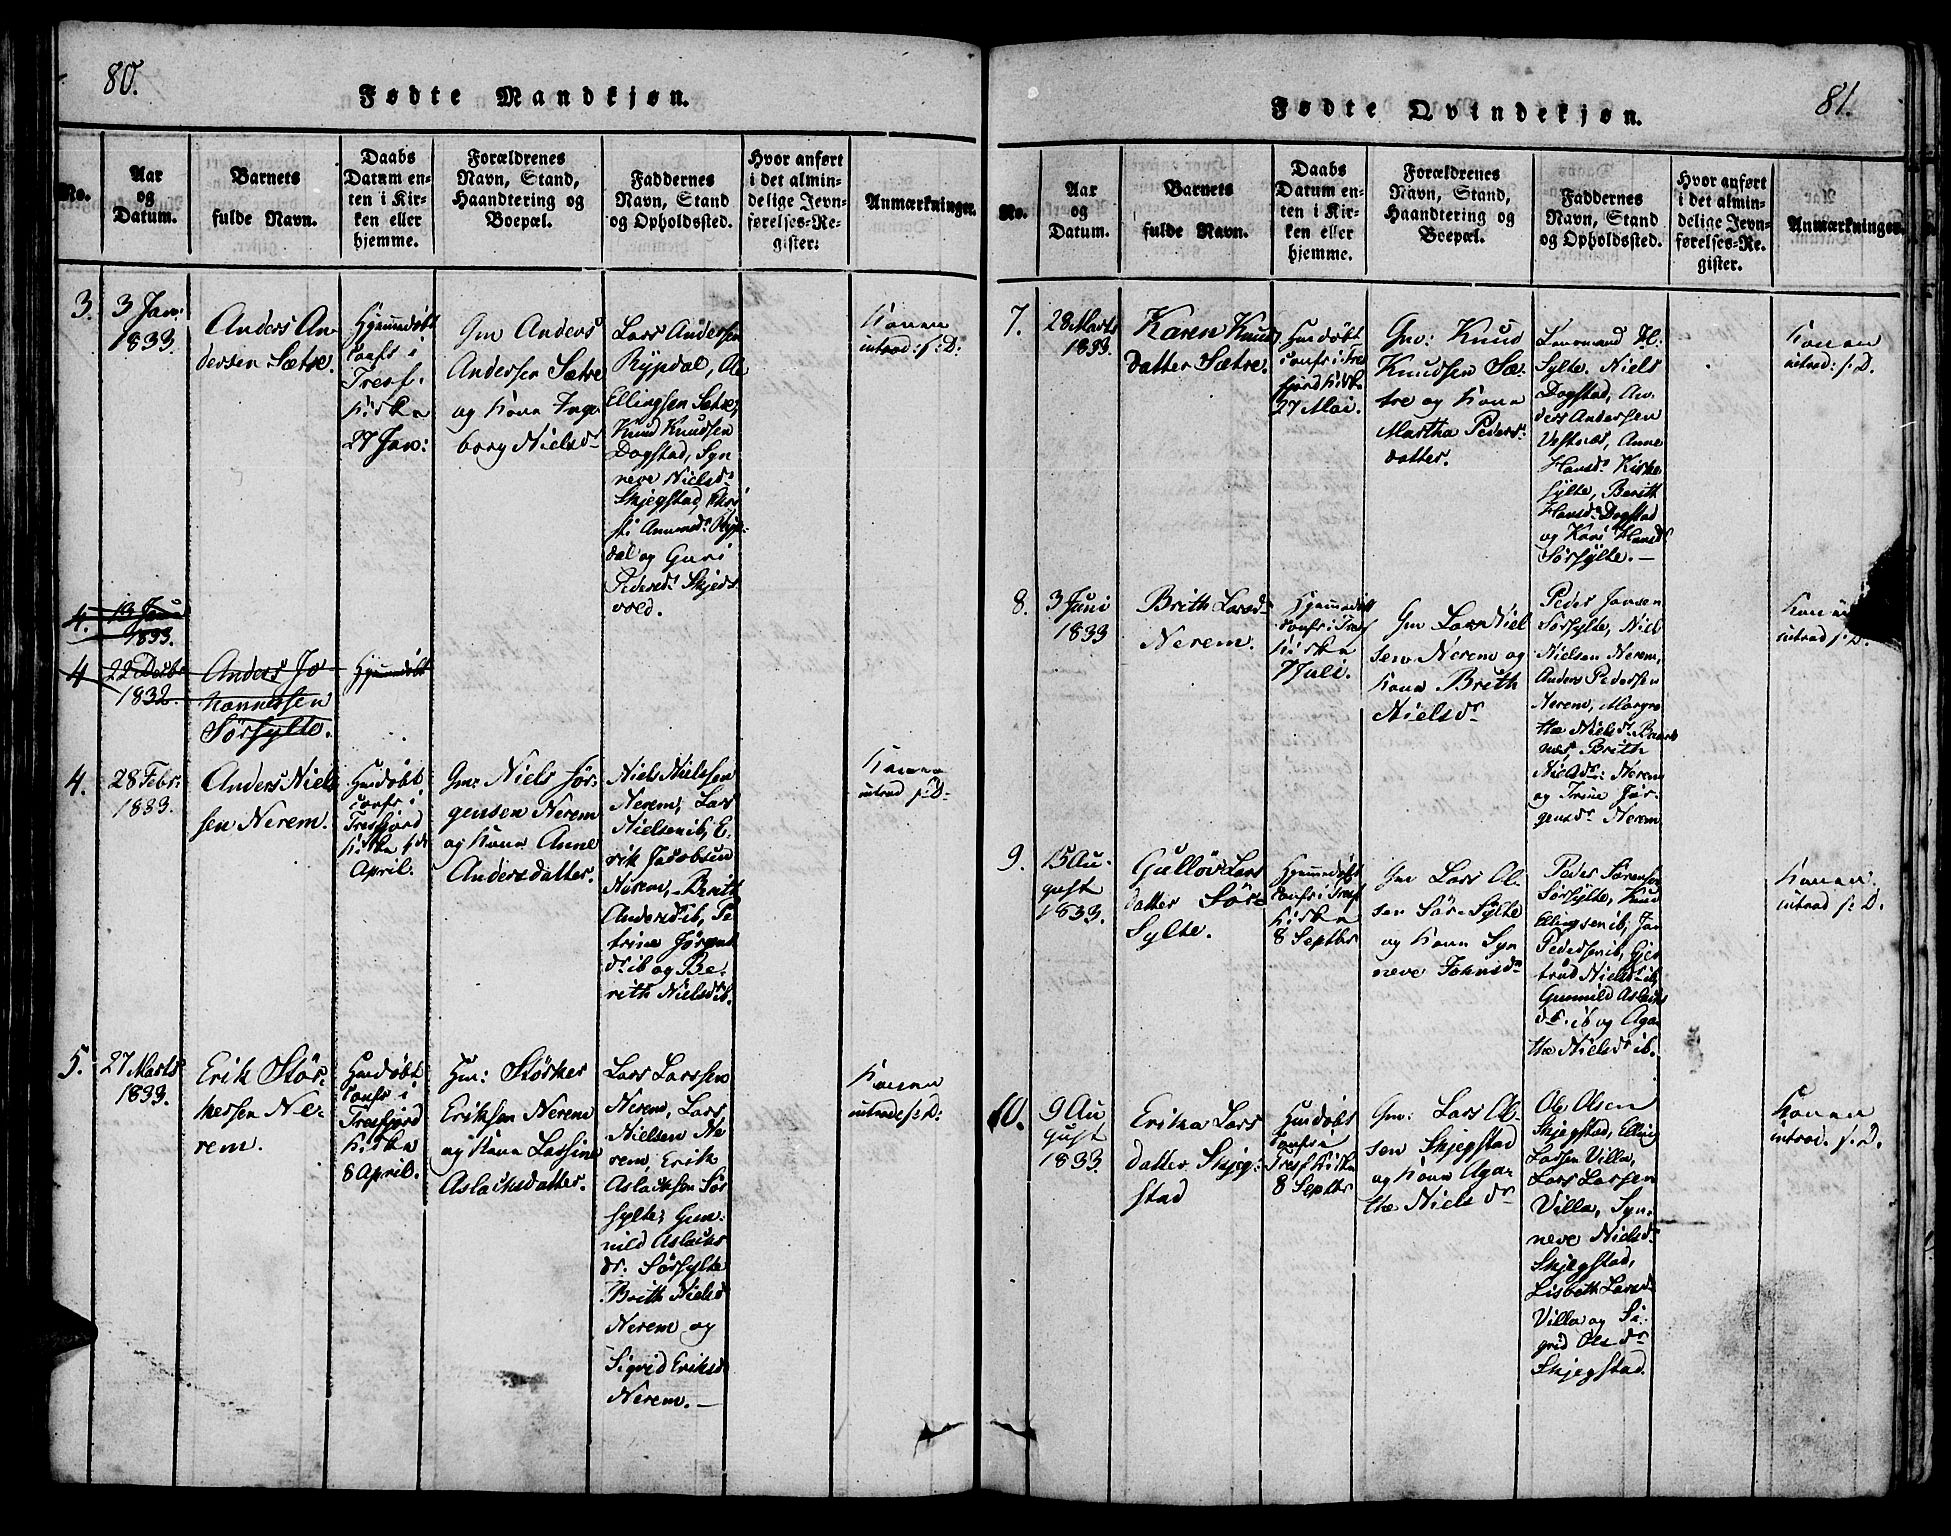 80.
Fødte Mandkjøn.
No.
Aar
og
Datum.
Barnets
fulde Navn.
Daabs
Datum en-
ten i Kir-
ken eller
hjemme.
Forældrenes
Navn, Stand,
Haandtering og
Boepæl.
Faddernes
Navn, Stand
og Opholdssted.
Hvor anført
i det almin-
delige Jevn-
førelses-Re-
gister.
Anmærkninger.
3.
3 Jan:
1833.
Anders An
dersen Sætre.
Hjemmedøbt
confs i
Tresf.
Kirke
27 Jan:
Gm Anders
Andersen Sætre
og Kone Inge
borg Nielsdr
Lars Andersen
Rypdal, Ole
Ellingsen Sætre,
Knud Knudsen
Dogstad, Syn
neve Nielsdr
Skjegstad,
sti Amundsdr Ryp
dal og Guri
Pedersdr Skjeds
vold.
Konen
introd: s: D:
4.
13 Janu
1833.
4
22 Decbr
1832.
Anders Jo
hannessen
Sørsylte.
Hjemmedøbt
4.
28 Febr.
1833.
Anders Niel
sen Nerem.
Hmdøbt
confs i
Tresfjord
Kirke
April.
Gm: Niels Jør
gensen Nerem
og Kone Anne
Andersdatter.
Niels Nielsen
Nerem, Lars
Nielsen ib, E
rik Jacobsen
Nerem, Berith
Andersd ib, Pe
trine Jørgens
dr ib og Be
rith Nielsdr ib.
Konen
introd s: D:
5.
27 Marts
1833.
Erik Stør
kersen Ne
rem.
Hmdøbt
confs i
Tresfjord
Kirke
8 April.
Gm: Størker
Eriksen Nerem
og Kone Lassine
Aslacksdatter.
Lars Larssen
Nerem, Lars
Nielsen Ne
rem, Erik
Aslacksen Sør
sylte, Gun
nild Aslacks
dr. Sørsylte
Brith Nielsd
Nerem og
Sigrid Eriksd
Nerem. —
Konen
introd s: D:
81.
Fødte Qvindekjøn.
No.
Aar
og
Datum.
Barnets
fulde Navn.
Daabs
Datum en-
ten i Kir-
ken eller
hjemme.
Forældrenes
Navn, Stand,
Haandtering og
Boepæl.
Faddernes
Navn, Stand
og Opholdssted.
Hvor anført
i det almin-
delige Jevn-
førelses-Re-
gister.
Anmærkninger.
7.
28 Marts
1833.
Karen Knud
datter Sætre.
Hmdøbt
confs i Tres
fjord Kirke
27 Mai.
Gm: Knud
Knudsen Sæ
tre og Kone
Martha Peders
datter.
Lensmand H.
Sylte, Niels
Dogstad, An
ders Andersen
Vestnæs, Anne
Hansdr Kirke
sylte, Berith
Hansdr Dogstad
og Kari Hansdr
Sørsylte. —
Konen
introd: s: D.
8.
3 Juni
1833
Brith Larsd
Nerem.
Hjemmedøbt
confs i Tresf
Kirke
7 Juli.
Gm Lars Niel
sen Nerem og
Kone Brith
Nielsdr
Peder Jansen
Sørsylte, Niels
Nielsen Nerem,
Anders Pedersen
Nerem, Margre
the Nielsdr
Brith
Nielsdr: Nerem
og Trine Jør
gensdr Nerem
Konen
introd s: D.
9.
15 Au
gust
1833.
Gulløv Lars
datter Sør
Sylte.
Hjemmedøbt
confs i Tresf
Kirke
8 Septbr
Gm Lars Ol
sen Sør-Sylte
og Kone Syn
neve Johnsdr
Peder Sørensen
Sørsylte, Knud
Ellingsen ib, Jan
Pedersen ib, Gjer
trud Nielsdr ib,
Gunnild Aslacks
dr. ib og Aga
the Nielsdr ib.
Konen
introd s: D.
10.
9 Au
gust
1833.
Erika Lars
datter Skjeg
stad
Hmdøbt
confs i
Tresf Kirke
8 Septbr
Gm: Lars Ol
sen Skjegstad
og Kone Aga
the Nielsdr
Ole Olsen
Skjegstad, Elling
Larsen Villa,
Lars Larsen
Villa, Syn
neve Nielsdr
Skjegstad,
Lisbeth Larsd
Villa og Si
grid Olsdr
Skjegstad.
Konen
introd. s: D.